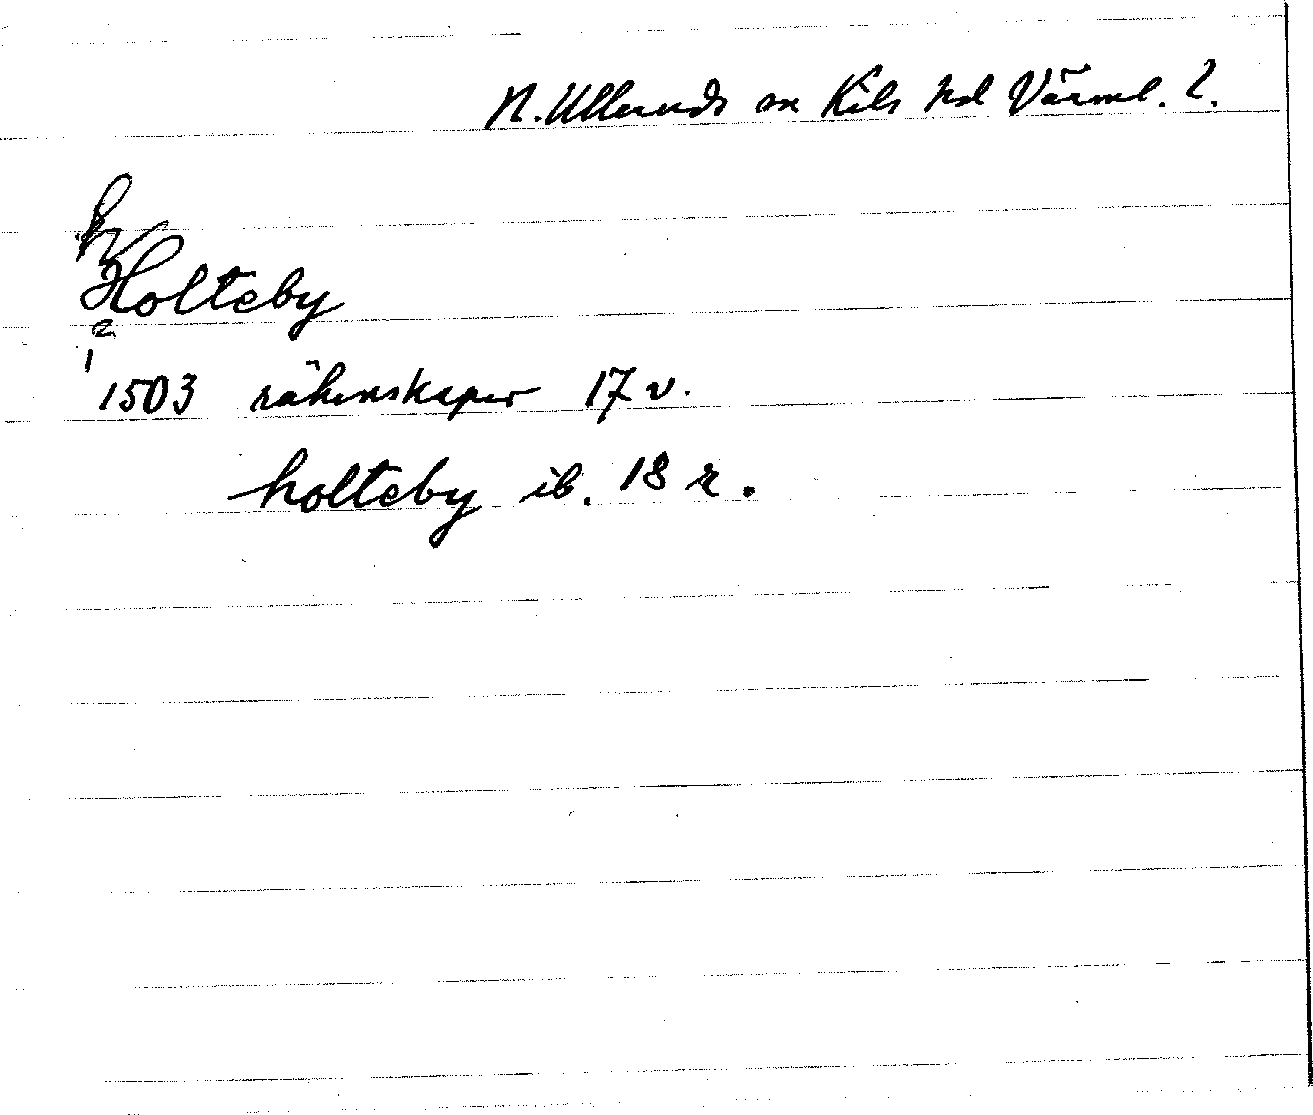 N. Ulleruds sn Kils hd Värml. l.
h
Holteby
2
1
1503 räkenskaper 17 v.
holteby ib. 18 r.